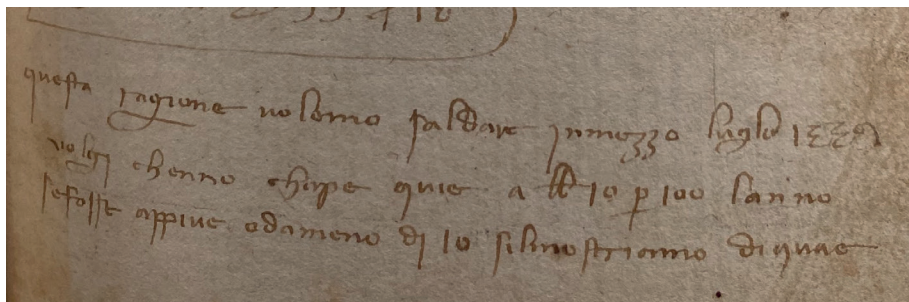 questa ragione volemo saldare in mezzo luglo 1339
volgi chenno chape quie a lb 10 p 100 lanno
sefosse appiue odameno di 10 silmostriamo diquae